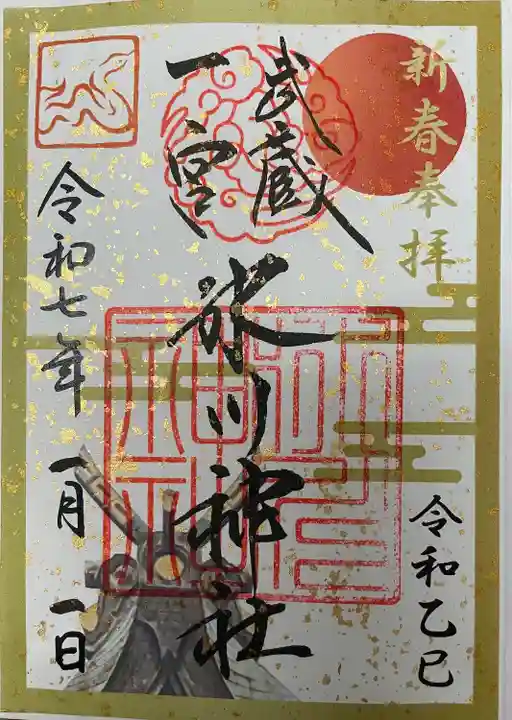 新春奉拝
武蔵
一宮
氷川神社
令和乙巳
令和七年 一月 一日